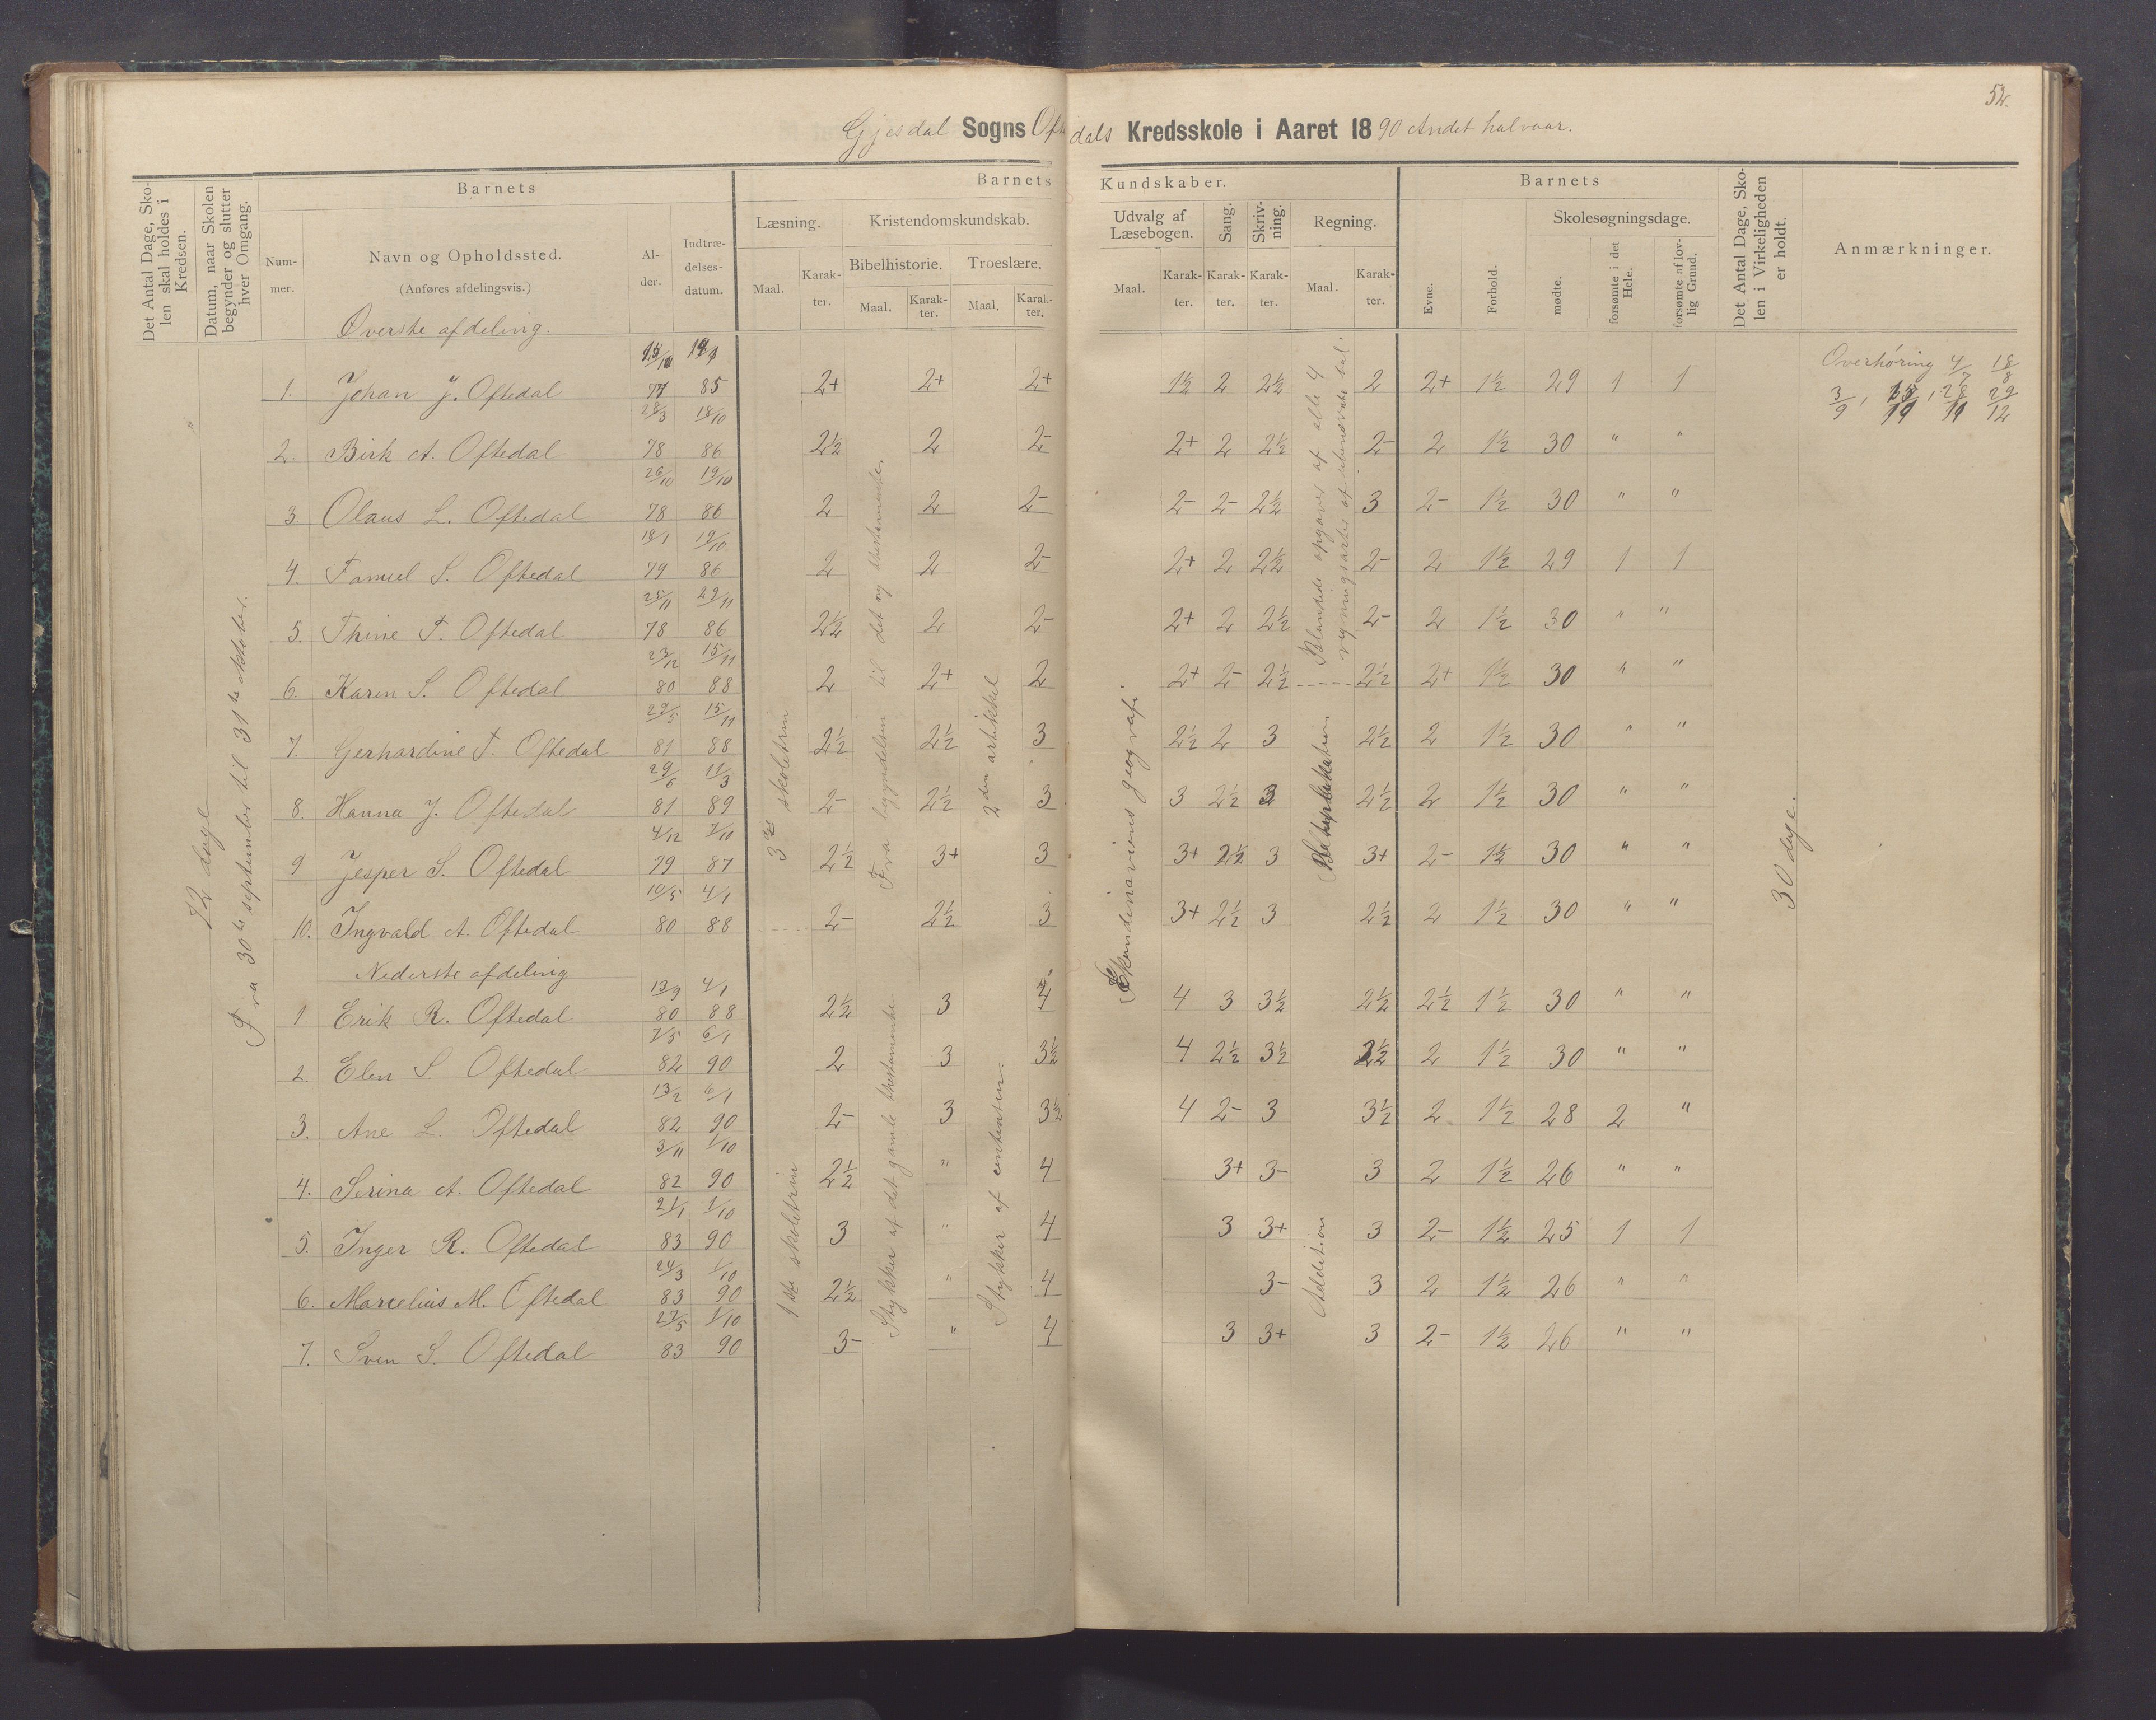 52.
Gjesdal Sogns Oftedals Kredsskole i Aaret 1890 Andet halvaar.
Det Antal Dage, Skolen skal holdes i Kredsen.
Datum, naar Skolen begynder og slutter hver Omgang.
Barnets
Nummer.
Navn og Opholdssted.
(Anføres afdelingsvis.)
Alder.
Indtrædelsesdatum.
Barnets Kundskaber.
Læsning. Kristendomskundskab.
Bibelhistorie. Troeslære.
Maal. Karakter. Maal. Karakter. Maal. Karakter.
Udvalg af Læsebogen. Sang. Skrivning. Regning.
Maal. Karakter. Karakter. Karakter. Maal. Karakter.
Barnets
Evne. Forhold. Skolesøgningsdage.
mødte. forsømte i det Hele. forsømte af lovlig Grund.
Det Antal Dage, Skolen i Virkeligheden er holdt.
Anmærkninger.
Øverste afdeling.
1. Johan J. Oftedal 77 85 2+ 2+ 2+ 1½ 2 2½ 2 2+ 1½ 29 1 1
Overhøring 4/7 18/8
3/9, 29/12
28/3 18/10
2. Birk A. Oftedal 78 86 2½ 2 2- 2+ 2 2½ 2- 2 1½ 30 " "
26/10 19/10
3 Olaus L. Oftedal 78 86 2 2 2- 2- 2- 2½ 3 2- 1½ 30 " "
18/1 19/10
4. Samuel S. Oftedal 79 86 2 2 2- 2+ 2 2½ 2- 2 1½ 29 1 1
25/11 29/11
5. Thine S. Oftedal 78 86 2½ 2 2- 2+ 2 2½ 2- 2 1½ 30 " "
23/12 15/11
6. Karen S. Oftedal 80 88 2 2+ 2 2+ 2- 2½ 2½ 2+ 1½ 30 " "
29/5 15/11
7. Gerhardine S. Oftedal 81 88 2½ 2½ 3 2½ 2 3 2½ 2 1½ 30 " "
29/6 11/3
8. Hanna J. Oftedal 81 89 2- 2½ 3 3 2½ 3 2½ 2 1½ 30 " "
4/12 7/10
9 Jesper S. Oftedal 79 87 2½ 3+ 3 3+ 2½ 3 3+ 2- 1½ 30 " "
10/5 4/1
10. Ingvald A. Oftedal 80 88 2- 2½ 3 3+ 2½ 3 2½ 2 1½ 30 " "
Nederste afdeling
13/9 4/1
1 Erik R. Oftedal 80 88 2½ 3 4 4 3 3½ 2½ 2½ 1½ 30 " "
7/5 6/1
2. Elen S. Oftedal 82 90 2 3 3½ 4 2½ 3½ 2½ 2 1½ 30 " "
13/2 6/1
3. Ane L. Oftedal 82 90 2- 3 3½ 4 2- 3 3½ 2 1½ 28 2 "
3/11 1/10
4. Serina A. Oftedal 82 90 2½ " 4 3+ 3- 3 2 1½ 26 " "
21/1 1/10
5. Inger R. Oftedal 83 90 3 " 4 3 3+ 3 2- 1½ 25 1 1
24/3 1/10
6. Marcelius M. Oftedal 83 90 2½ " 4 3- 3 2 1½ 26 " "
27/5 1/10
7. Sven S. Oftedal 83 90 3- " 4 3 3+ 3 2- 1½ 26 " "
72 dage
Fra 30te september til 31te oktober.
3die skoletrin
1ste skoletrin
Fra begyndelsen til det ny testamente.
Stykker af det gamle testamente
2den artikkel
Stykker af
Skandinaviens geografi
Blandede opgaver af alle 4 regningsarter af ubenævnte tal.
Addition
30 dage.